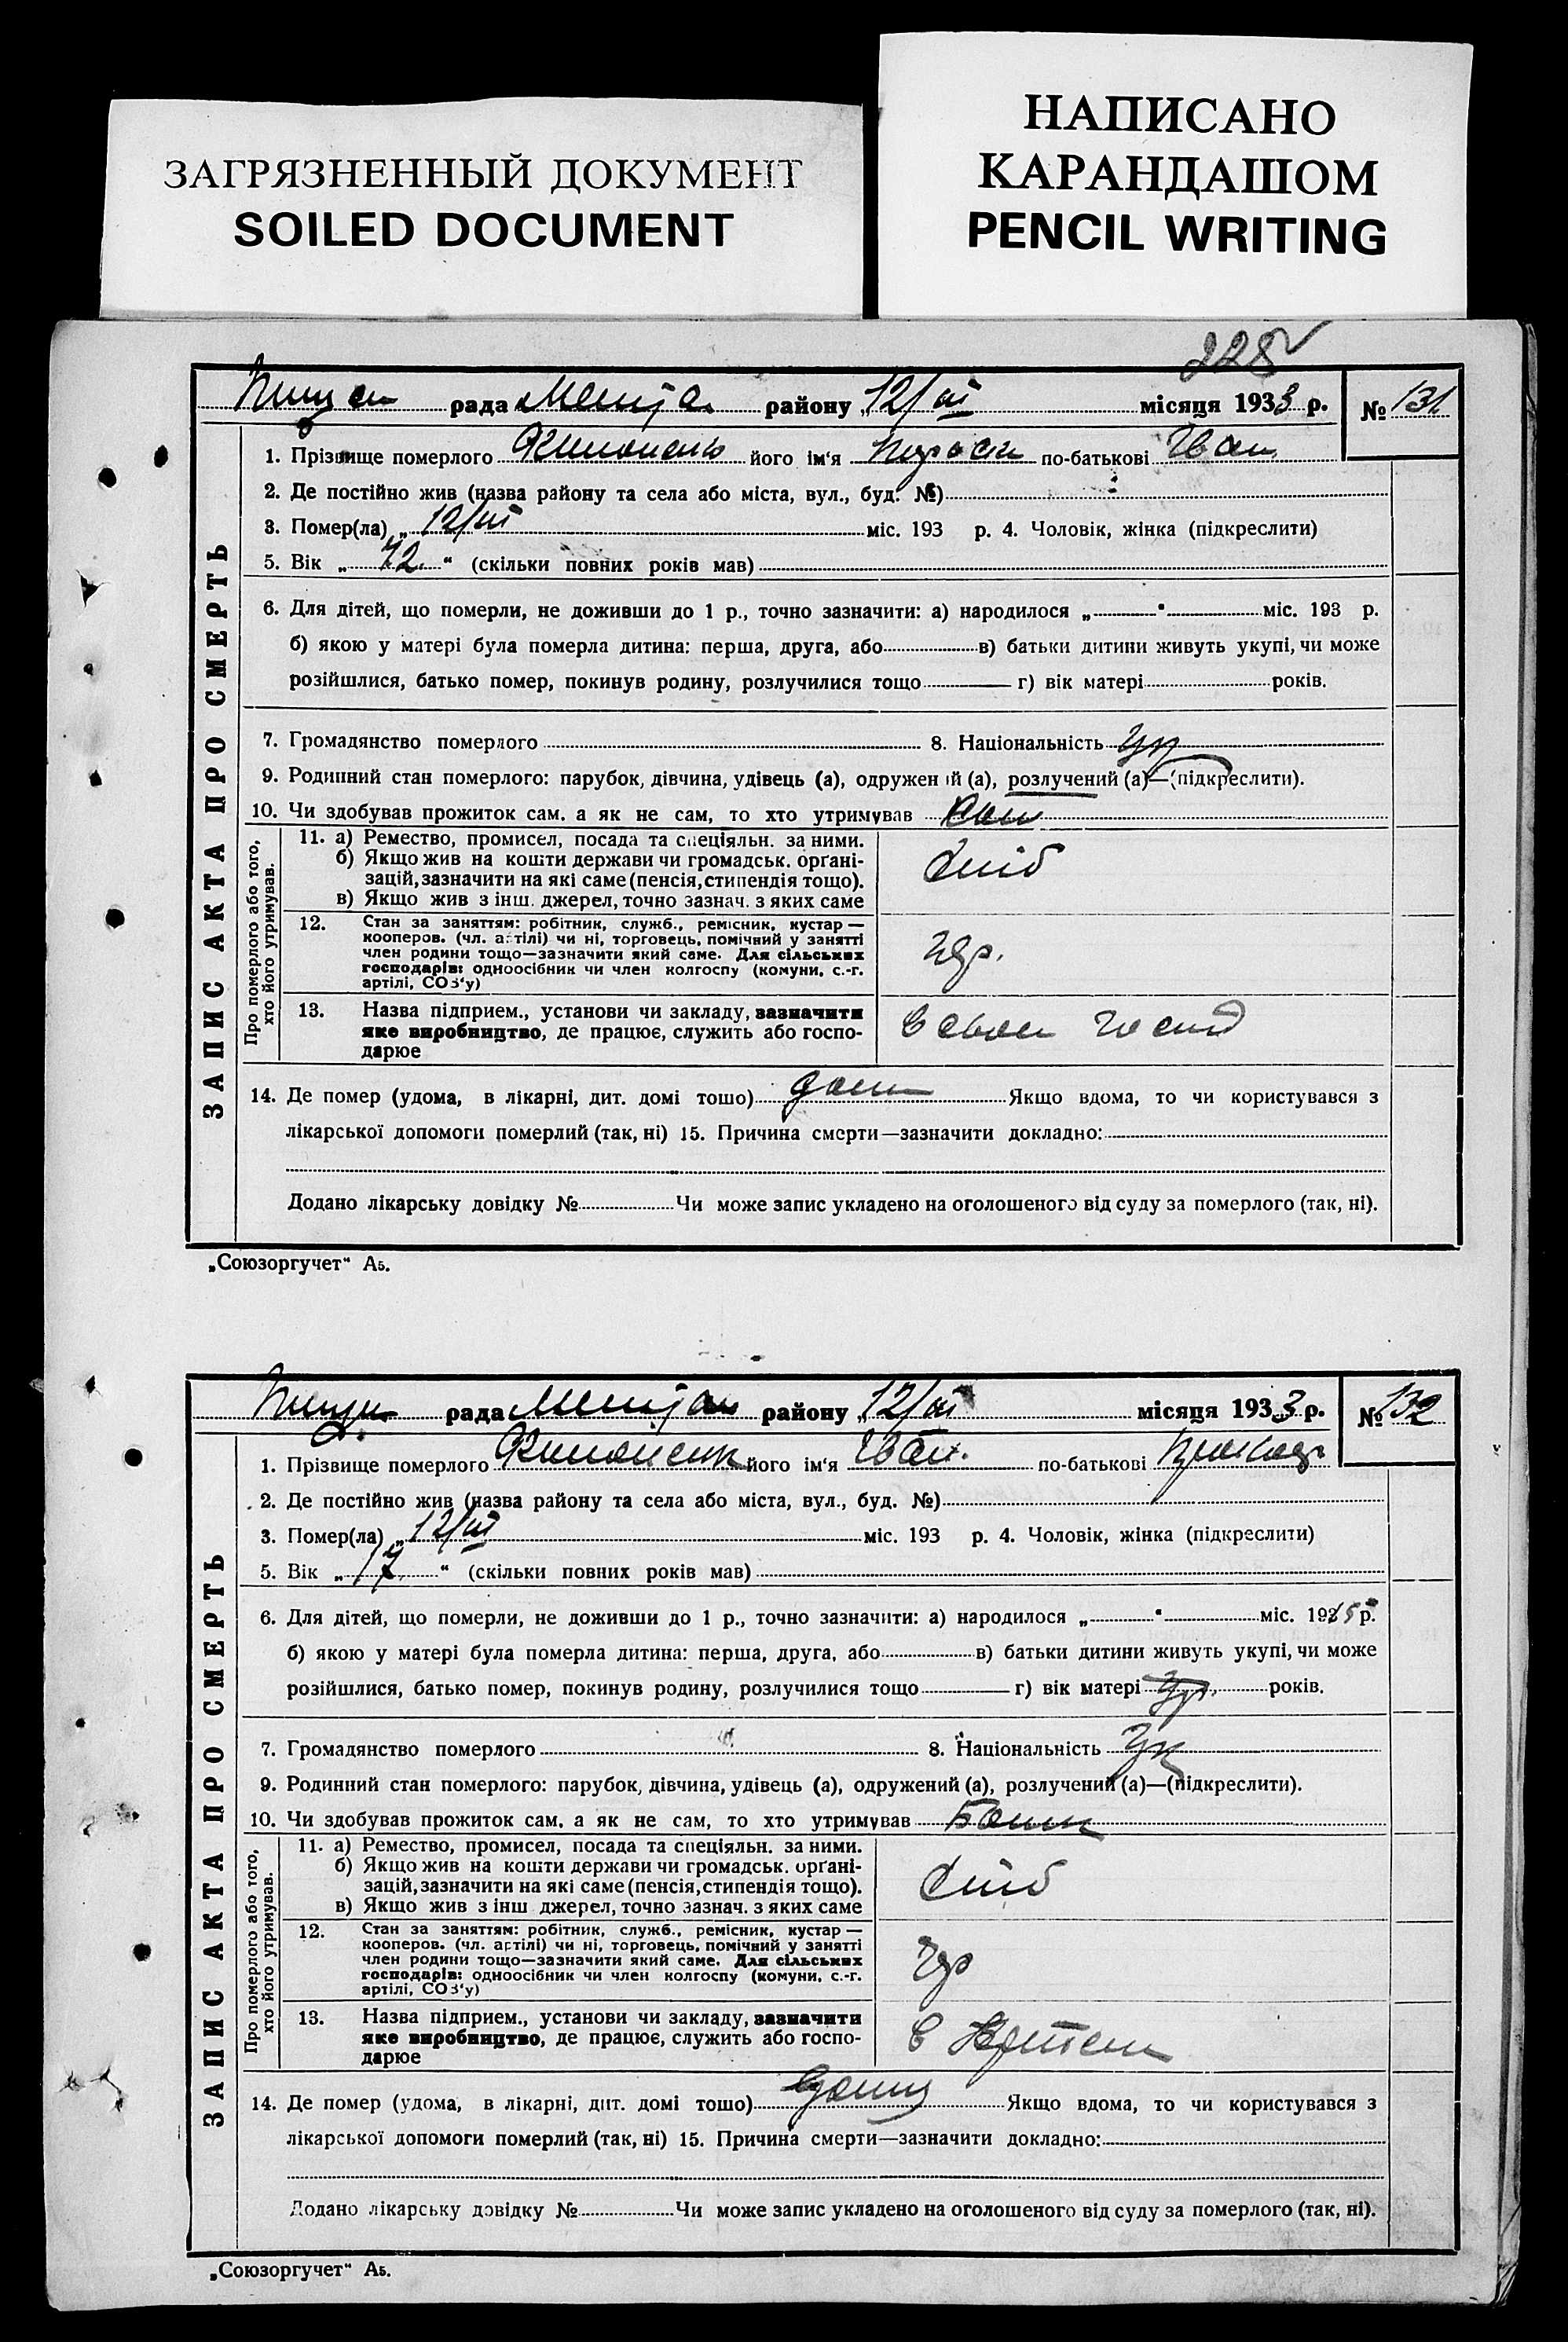 ЗАГРЯЗНЕННЫЙ ДОКУМЕНТ
SOILED DOCUMENT
НАПИСАНО
КАРАНДАШОМ
PENCIL WRITING
228
рада району 12/III місяця 1933 р. № 131
ЗАПИС АКТА ПРО СМЕРТЬ
1. Прізвище померлого його ім'я по-батькові Іван
2. Де постійно жив (назва району та села або міста, вул., буд. №)
3. Помер(ла) „ 12/III міс. 193 р. 4. Чоловік, жінка (підкреслити)
5. Вік „ 72 “ (скільки повних років мав)
6. Для дітей, що померли, не доживши до 1 р., точно зазначити: а) народилося „ “ міс. 193 р.
б) якою у матері була померла дитина: перша, друга, або в) батьки дитини живуть укупі, чи може
розійшлися, батько помер, покинув родину, розлучилися тощо г) вік матері років.
7. Громадянство померлого 8. Національність Ук
9. Родинний стан померлого: парубок, дівчина, удівець (а), одружений (а), розлучений (а)—(підкреслити).
10. Чи здобував прожиток сам, а як не сам, то хто утримував Сам
Про померлого або того, хто його утримував.
11. а) Ремество, промисел, посада та спеціяльн. за ними.
б) Якщо жив на кошти держави чи громадськ. орґані-
зацій, зазначити на які саме (пенсія, стипендія тощо).
в) Якщо жив з інш. джерел, точно зазнач. з яких саме
хліб
12. Стан за заняттям: робітник, служб., ремісник, кустар —
кооперов. (чл. артілі) чи ні, торговець, помічний у занятті
член родини тощо—зазначити який саме. Для сільських
господарів: одноосібник чи член колгоспу (комуни, с.-г.
артілі, СОЗ'у)
13. Назва підприєм., установи чи закладу, зазначити
яке виробництво, де працює, служить або госпо-
дарює
14. Де помер (удома, в лікарні, дит. домі тощо) дома Якщо вдома, то чи користувався з
лікарської допомоги померлий (так, ні) 15. Причина смерти—зазначити докладно:
Додано лікарську довідку № Чи може запис укладено на оголошеного від суду за померлого (так, ні).
„Союзоргучет“ А5.
рада району 12/III місяця 1933 р. № 132
ЗАПИС АКТА ПРО СМЕРТЬ
1. Прізвище померлого його ім'я Іван по-батькові
2. Де постійно жив (назва району та села або міста, вул., буд. №)
3. Помер(ла) „ 12/III міс. 193 р. 4. Чоловік, жінка (підкреслити)
5. Вік „ 17 “ (скільки повних років мав)
6. Для дітей, що померли, не доживши до 1 р., точно зазначити: а) народилося „ “ міс. 1915 р.
б) якою у матері була померла дитина: перша, друга, або в) батьки дитини живуть укупі, чи може
розійшлися, батько помер, покинув родину, розлучилися тощо г) вік матері років.
7. Громадянство померлого 8. Національність Ук
9. Родинний стан померлого: парубок, дівчина, удівець (а), одружений (а), розлучений (а)—(підкреслити).
10. Чи здобував прожиток сам, а як не сам, то хто утримував
Про померлого або того, хто його утримував.
11. а) Ремество, промисел, посада та спеціяльн. за ними.
б) Якщо жив на кошти держави чи громадськ. орґані-
зацій, зазначити на які саме (пенсія, стипендія тощо).
в) Якщо жив з інш. джерел, точно зазнач. з яких саме
хліб
12. Стан за заняттям: робітник, служб., ремісник, кустар —
кооперов. (чл. артілі) чи ні, торговець, помічний у занятті
член родини тощо—зазначити який саме. Для сільських
господарів: одноосібник чи член колгоспу (комуни, с.-г.
артілі, СОЗ'у)
13. Назва підприєм., установи чи закладу, зазначити
яке виробництво, де працює, служить або госпо-
дарює
14. Де помер (удома, в лікарні, дит. домі тощо) Якщо вдома, то чи користувався з
лікарської допомоги померлий (так, ні) 15. Причина смерти—зазначити докладно:
Додано лікарську довідку № Чи може запис укладено на оголошеного від суду за померлого (так, ні).
„Союзоргучет“ А5.